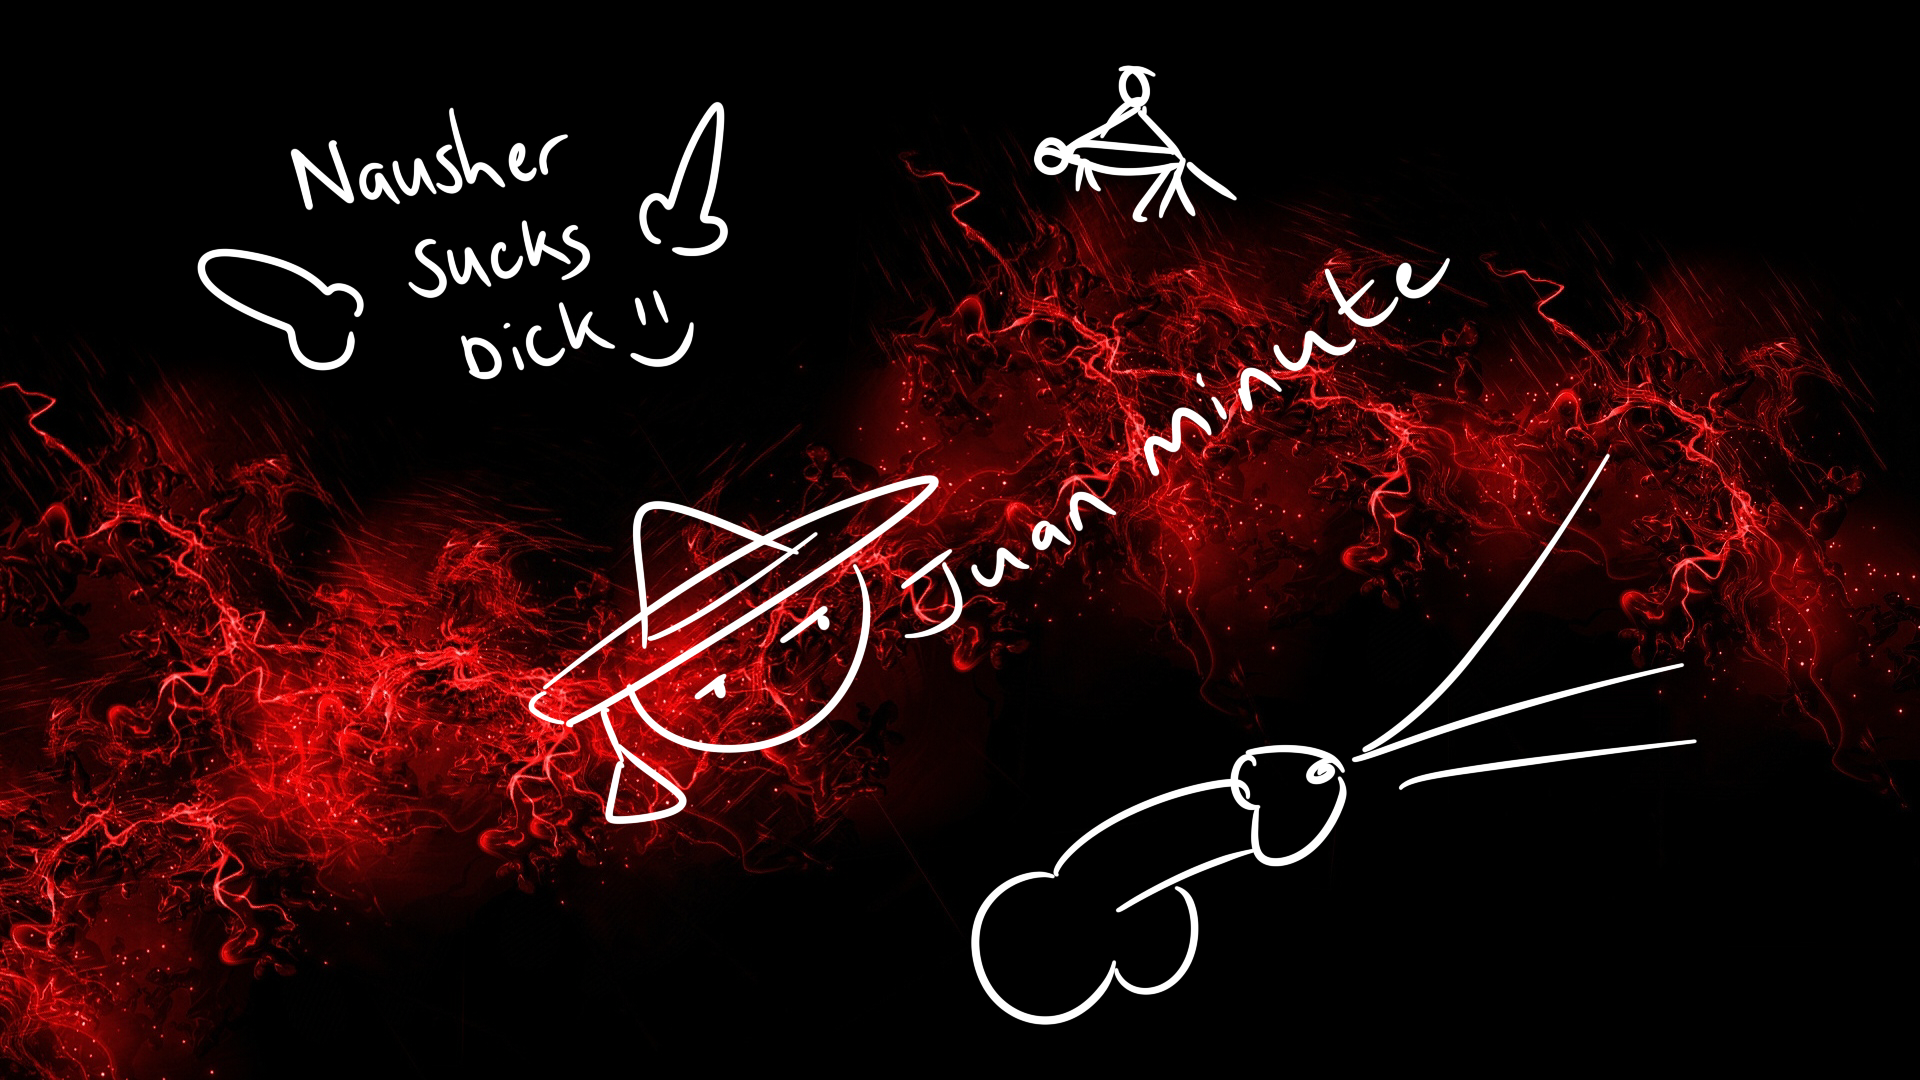 Nausher
sucks
Dick
Juan minute